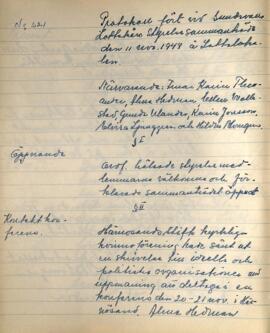 No 424
Protokoll fört vid Sundsvalls
Lottakårs styrelsesammanträde
den 11 nov. 1948 å Lottaloka-
len.
Närvarande: Fruar Karin
Alma Hedman
Gunda Karin Jonsson,
Elvira Ljunggren och Hildur
§ I
Öppnande
Ordf. hälsade styrelsemed-
lemmarna välkomna och för-
klarade sammanträdet öppnat
§ II
Kontaktkon-
ferens.
Härnösands stifts kyrkliga
kvinnoförening hade sänt ut
en skrivelse till ideella och
politiska organisationer med
uppmaning att deltaga i en
konferens den 20-21 nov. i Här-
nösand. Alma Hedman